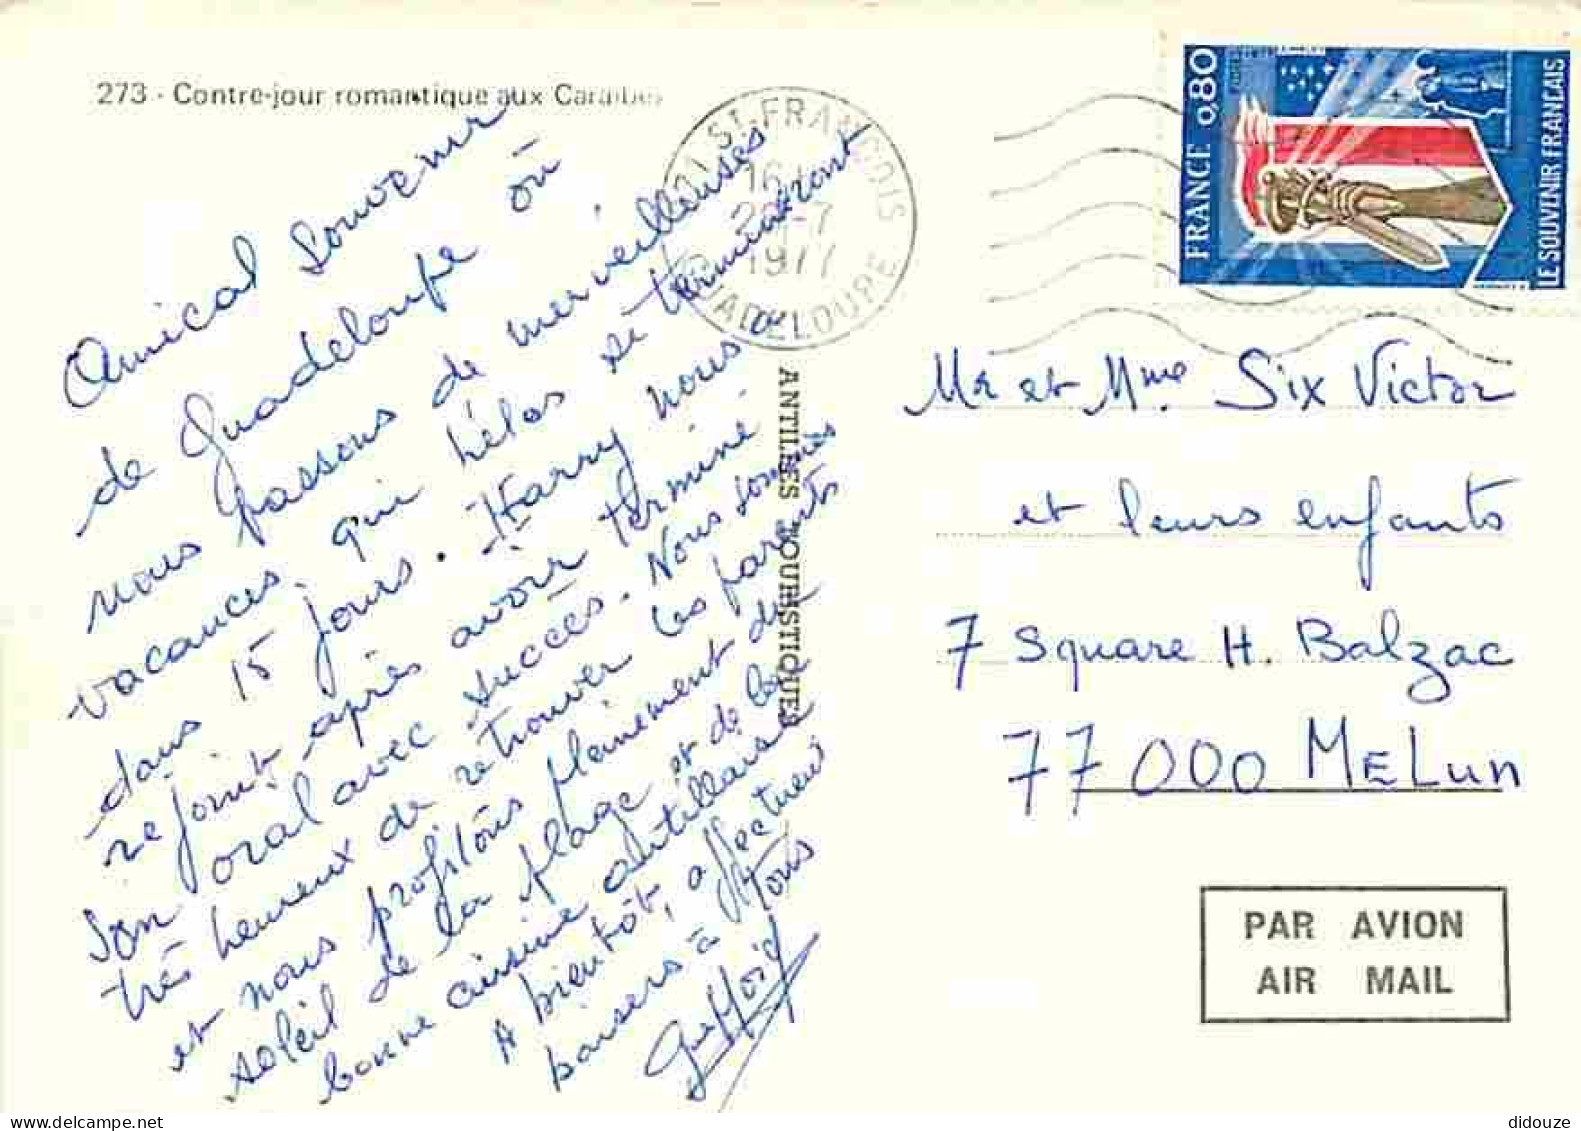 273 - Contre-jour romantique aux Caraïbes
Amical souvenir
de Guadeloupe où
nous passons de merveilleuses
vacances, qui hélas se termineront
dans 15 jours. Harry nous a
rejoint après avoir terminé
son oral avec succès. Nous sommes
très heureux de retrouver les parents
et nous profitons pleinement du
soleil de la plage et de la
bonne cuisine antillaise
A bientôt, affectueux
baisers à tous
ANTILLES TOURISTIQUES
ST FRANCOIS
16 H
1977
GUADELOUPE
FRANCE 0,80
LE SOUVENIR FRANÇAIS
Mr et Mme Six Victor
et leurs enfants
7 square H. Balzac
77000 MELun
PAR AVION
AIR MAIL
didouze